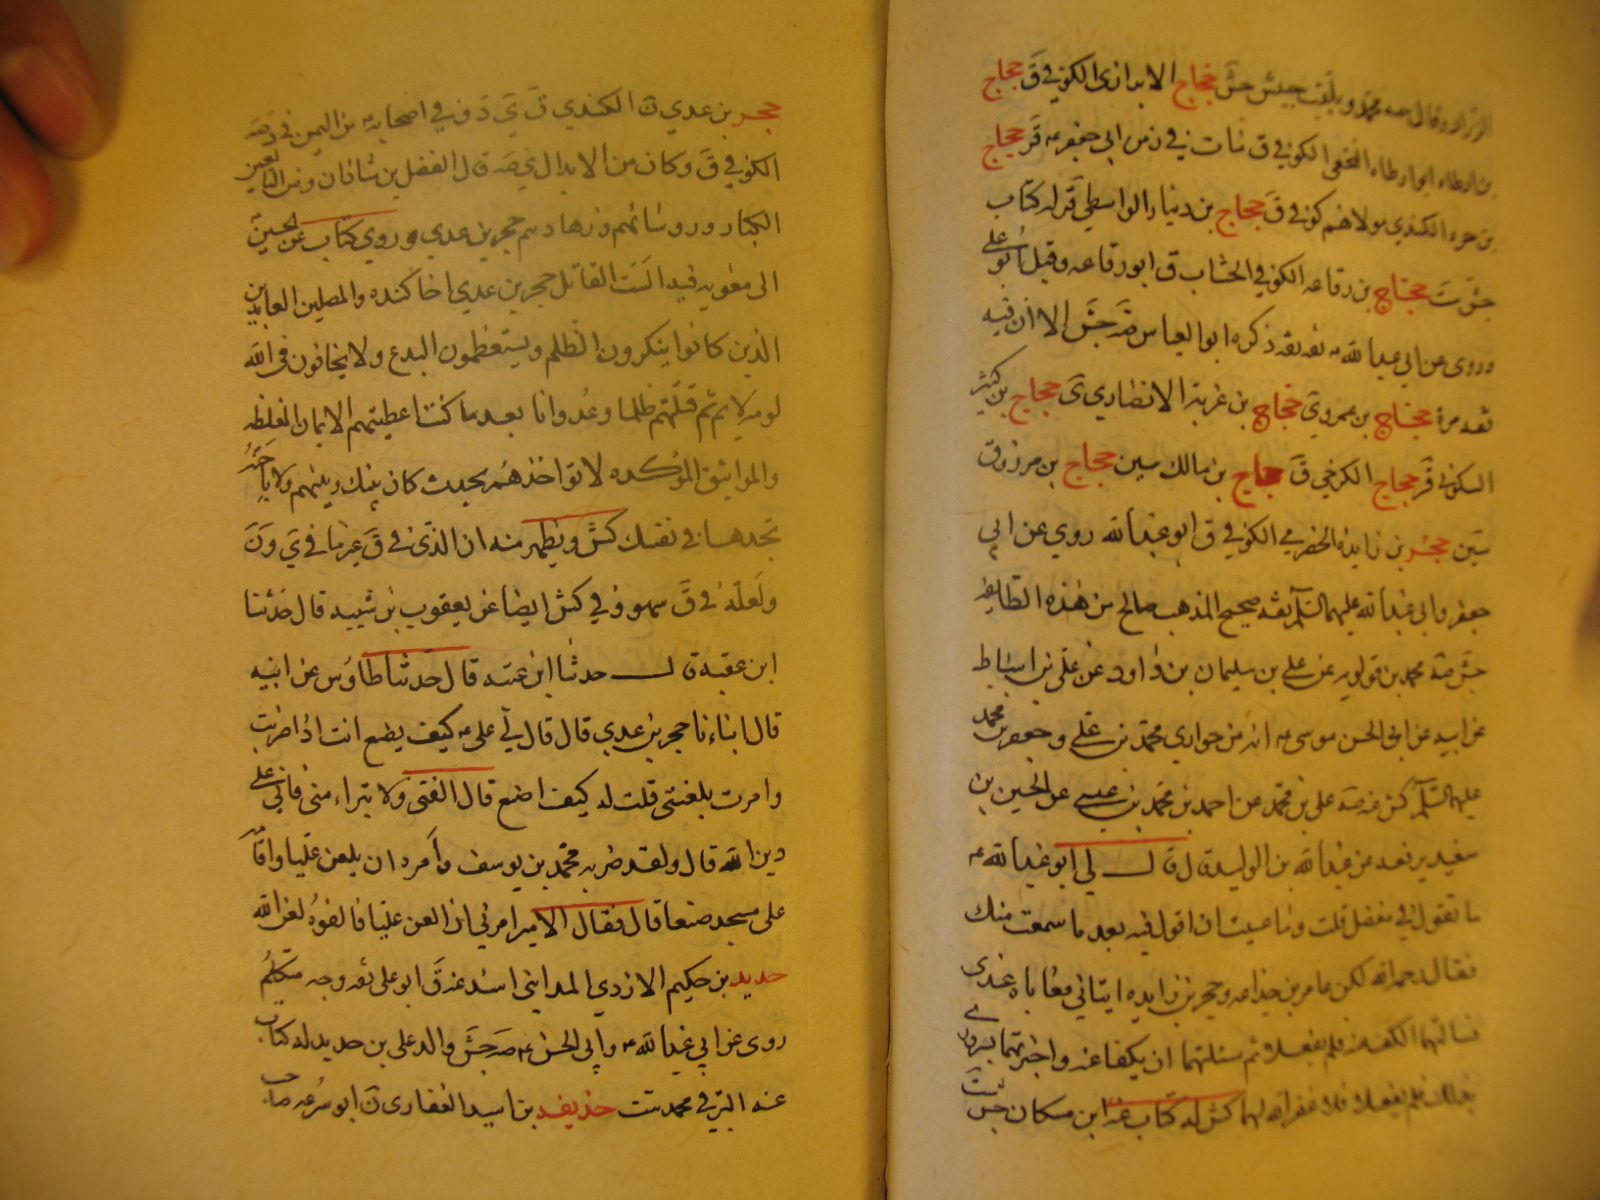 الرزاد وقال صه محمد ويلقب جيش جش حجاج الابزازى الكوفي ق حجاج
بن ارطاه ابو ارطاه النخعى الكوفي ق مات في زمن ابي جعفر مه قر حجاج
بن حره الكندي مولاهم كوفي ق حجاج بن دينار الواسطي قر له كتاب
جش ست حجاج بن رفاعه الكوفي الخشاب ق ابو رفاعه وقيل ابو علي
وروى عن ابي عبدالله مه ثقه ثقه ذكره ابو العباس صه جش الا ان فيه
ثقه مرة حجاج بن عمرو ى حجاج بن غزية الانصاري ى حجاج بن كثير
السكوني قر حجاج الكرخي ق حجاج بن مالك سين حجاج بن مرزوق
سين حجر بن زايده الحضرمي الكوفي ق ابو عبدالله روي عن ابي
جعفر وابي عبدالله عليهما السلم ثقه صحيح المذهب صالح من هذه الطايفه
جش صه محمد بن قولويه عن علي بن سليمان بن داود عن علي بن اسباط
عن ابيه عن ابي الحسن موسى مه انه من حواري محمد بن علي وجعفر بن محمد
عليهما السلم كش فى صه على بن محمد عن احمد بن محمد بن عيسى عن الحسين بن
سعيد يرفعه عن عبدالله بن الوليد قال قال لي ابو عبدالله مه
ما تقول في مفضل قلت وما عسيت ان اقول فيه بعد ما سمعت منك
فقال رحمه الله لكن عامر بن جذاعه وحجر بن زايده اتياني فعاباه عندى
فسالتهما الكف عنه فلم يفعلا ثم سئلتهما ان يكفا عنه واخبرتهما بسرورى
بذلك فلم يفعلا فلا غفر الله لهما كش له كتاب عنه ابن مسكان جش ست
حجر بن عدي ن الكندي ق ي د في اصحابه مه من اليمن في د صه
الكوفي ق وكان من الابدال ي صه قال الفضل بن شاذان ومن التابعين
الكبار وروسائهم وزهادهم حجر بن عدي وروي كتاب عن الحسين
الى معويه فيه الست القاتل حجر بن عدي اخا كنده والمصلين العابدين
الذين كانوا ينكرون الظلم ويستعظمون البدع ولا يخافون فى الله
لومة لايم ثم قتلتهم ظلما وعدوانا بعد ما كنت اعطيتهم الايمان المغلظه
والمواثيق المؤكده لا تواخذهم بحدث كان بينك وبينهم ولا باحنه
تجدها في نفسك كش ويظهر منه ان الذى في ق غير ما في ي و ن
ولعله في ق سهو وفي كش ايضا عن يعقوب بن شيبه قال حدثنا
ابن عقبه قال حدثنا ابن عيينه قال حدثنا طاوس عن ابيه
قال انباءنا حجر بن عدي قال قال لي على مه كيف يضع انت اذا ضربت
وامرت بلعنتى قلت له كيف اضع قال العنى ولا تبراء منى فاني على
دين الله قال ولقد ضربه محمد بن يوسف وامره ان يلعن عليا واقامه
على مسجد صنعا قال فقال الامير امرني ان العن عليا فالعنوه لعنه الله
حديد بن حكيم الازدي المدايني اسند عنه ق ابو على ثقه وجه متكلم
روى عن ابي عبدالله مه وابي الحسن مه صه جش والد علي بن حديد له كتاب
عنه البرقي محمد ست حذيفه بن اسيد الغفارى ن ابو سرعه صاحب